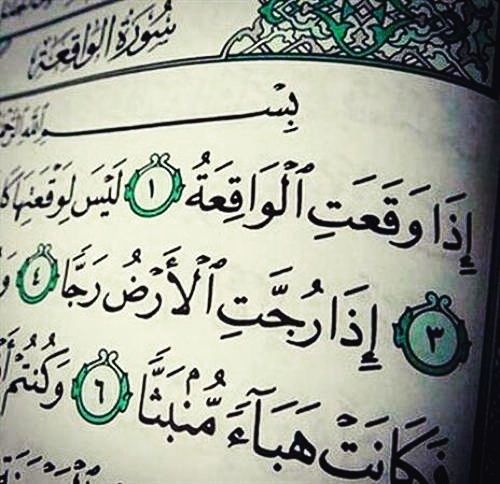 سُورَةُ الْوَاقِعَةِ
بِسْمِ اللَّهِ
إِذَا وَقَعَتِ ٱلۡوَاقِعَةُ ١ لَيۡسَ لِوَقۡعَتِهَا
٣ إِذَا رُجَّتِ ٱلۡأَرۡضُ رَجّٗا ٤
فَكَانَتۡ هَبَآءٗ مُّنۢبَثّٗا ٦ وَكُنتُمۡ